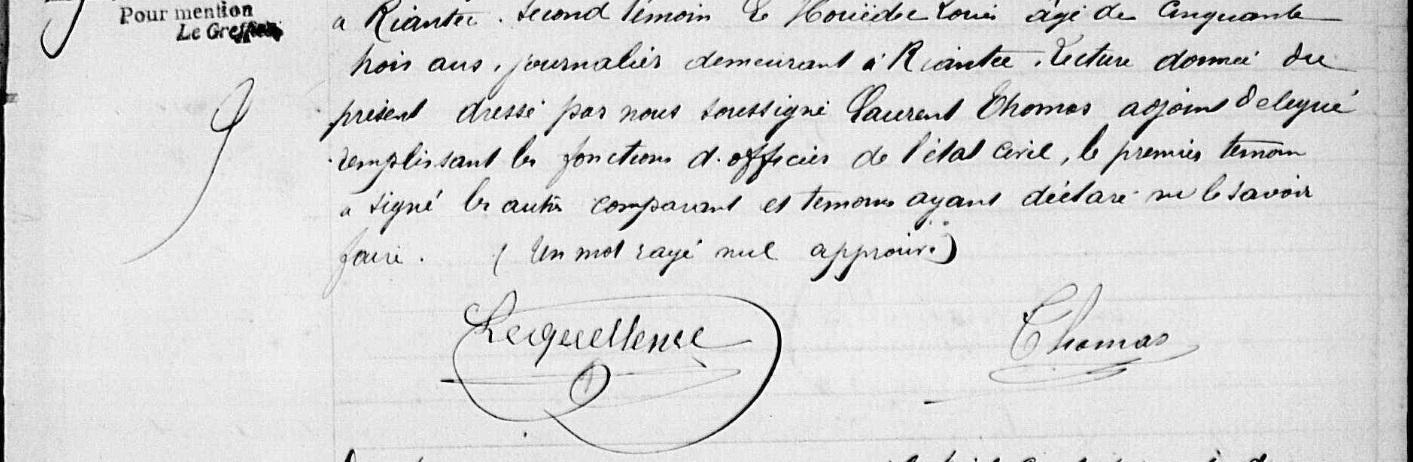 Pour mention
Le Greffier
a Riantec. Second témoin Le Houëdec Louis agé de Cinquante
trois ans, journalier demeurant à Riantec. Lecture donnée du
présent dressé par nous soussigné Laurent Thomas adjoint délégué
remplissant les fonctions d'officier de l'état civil, le premier témoin
a signé les autres comparant et temoins ayant déclaré ne le savoir
faire. (Un mot rayé nul approuvé)
Lequellenec
Thomas